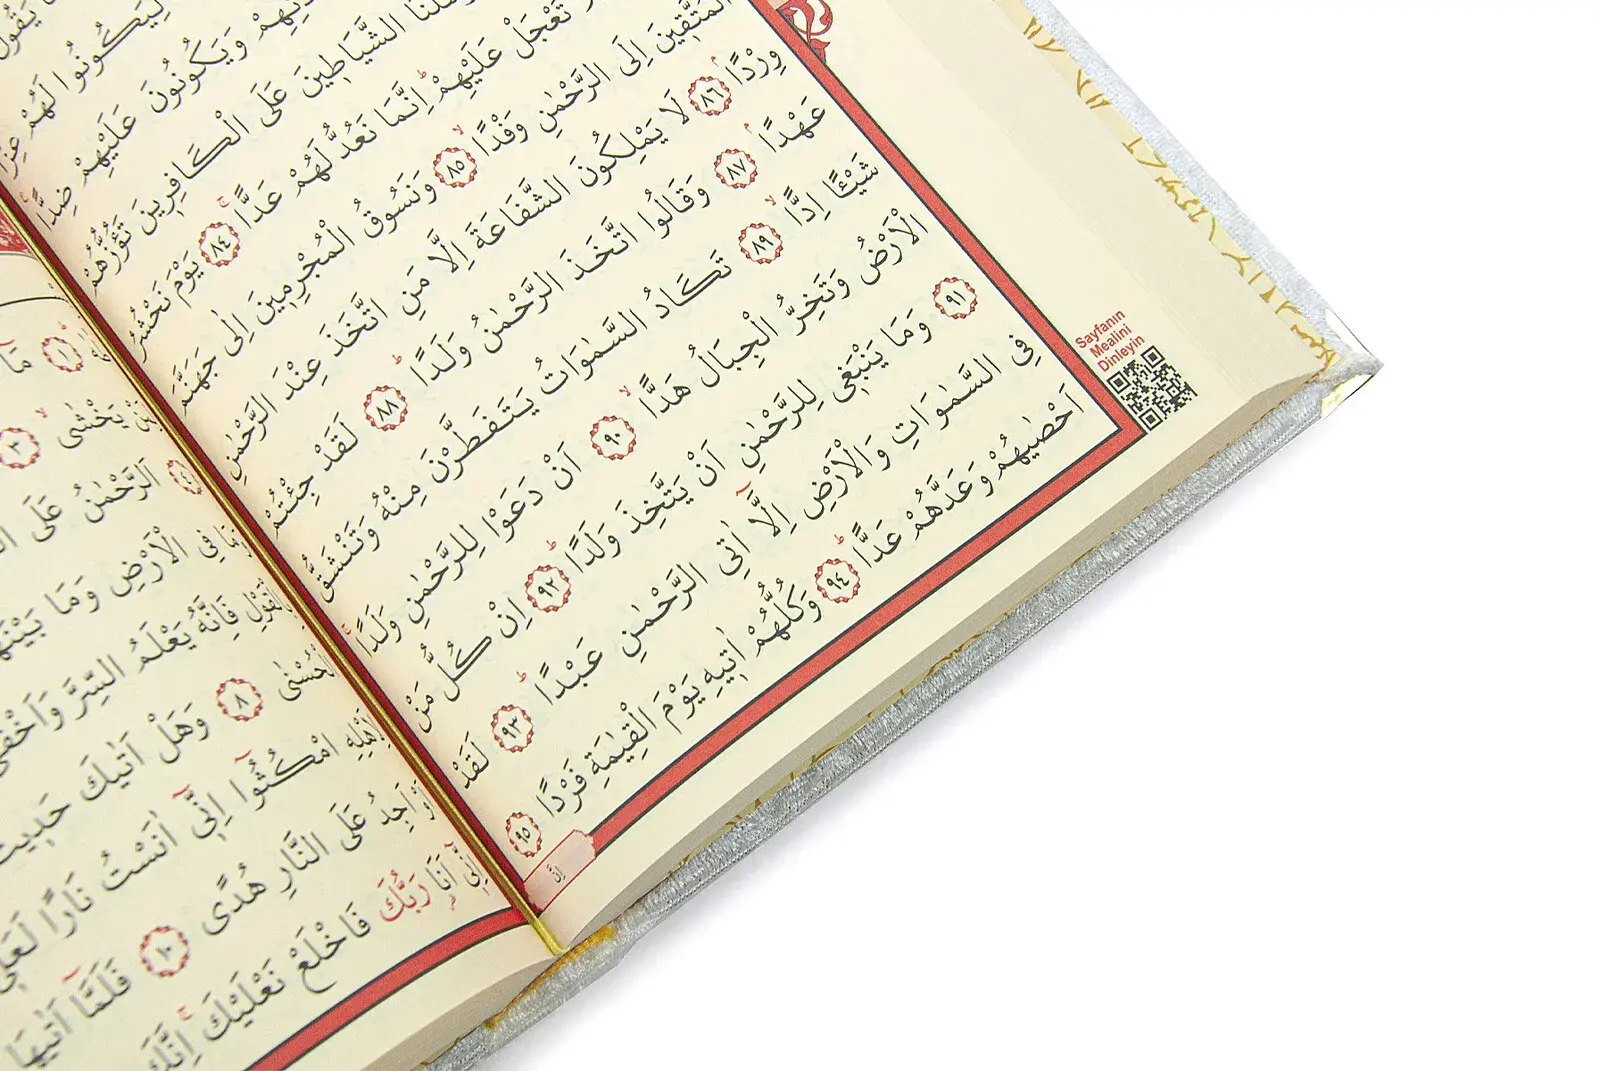 لِيَكُونُوا لَهُمْ عِزًّا
وَيَكُونُونَ عَلَيْهِمْ ضِدًّا
الشَّيَاطِينَ عَلَى الْكَافِرِينَ تَؤُزُّهُمْ
تَعْجَلْ عَلَيْهِمْ اِنَّمَا نَعُدُّ لَهُمْ عَدًّا ٨٤ يَوْمَ نَحْشُرُ
الْمُتَّقِينَ اِلَى الرَّحْمٰنِ وَفْدًا ٨٥ وَنَسُوقُ الْمُجْرِمِينَ اِلٰى جَهَنَّمَ
وِرْدًا ٨٦ لَا يَمْلِكُونَ الشَّفَاعَةَ اِلَّا مَنِ اتَّخَذَ عِنْدَ الرَّحْمٰنِ
عَهْدًا ٨٧ وَقَالُوا اتَّخَذَ الرَّحْمٰنُ وَلَدًا ٨٨ لَقَدْ جِئْتُمْ
شَيْـًٔا اِدًّا ٨٩ تَكَادُ السَّمٰوَاتُ يَتَفَطَّرْنَ مِنْهُ وَتَنْشَقُّ
الْاَرْضُ وَتَخِرُّ الْجِبَالُ هَدًّا ٩٠ اَنْ دَعَوْا لِلرَّحْمٰنِ وَلَدًا
٩١ وَمَا يَنْبَغِى لِلرَّحْمٰنِ اَنْ يَتَّخِذَ وَلَدًا ٩٢ اِنْ كُلُّ مَنْ
فِى السَّمٰوَاتِ وَالْاَرْضِ اِلَّٓا اٰتِى الرَّحْمٰنِ عَبْدًا ٩٣ لَقَدْ
اَحْصٰيهُمْ وَعَدَّهُمْ عَدًّا ٩٤ وَكُلُّهُمْ اٰتِيهِ يَوْمَ الْقِيٰمَةِ فَرْدًا ٩٥
Sayfanın
Mealini
Dinleyin
١ مَٓا
يَخْشٰى ٣
٤ اَلرَّحْمٰنُ عَلَى
فِى الْاَرْضِ وَمَا
فَاِنَّهُ يَعْلَمُ السِّرَّ وَاَخْفٰى
٨ وَهَلْ اَتٰيكَ حَدِيثُ
امْكُثُٓوا اِنِّٓى اٰنَسْتُ نَارًا
عَلَى النَّارِ هُدًى ١٠ فَلَمَّٓا اَتٰيهَا
اِنِّٓى اَنَا رَبُّكَ فَاخْلَعْ نَعْلَيْكَ اِنَّكَ